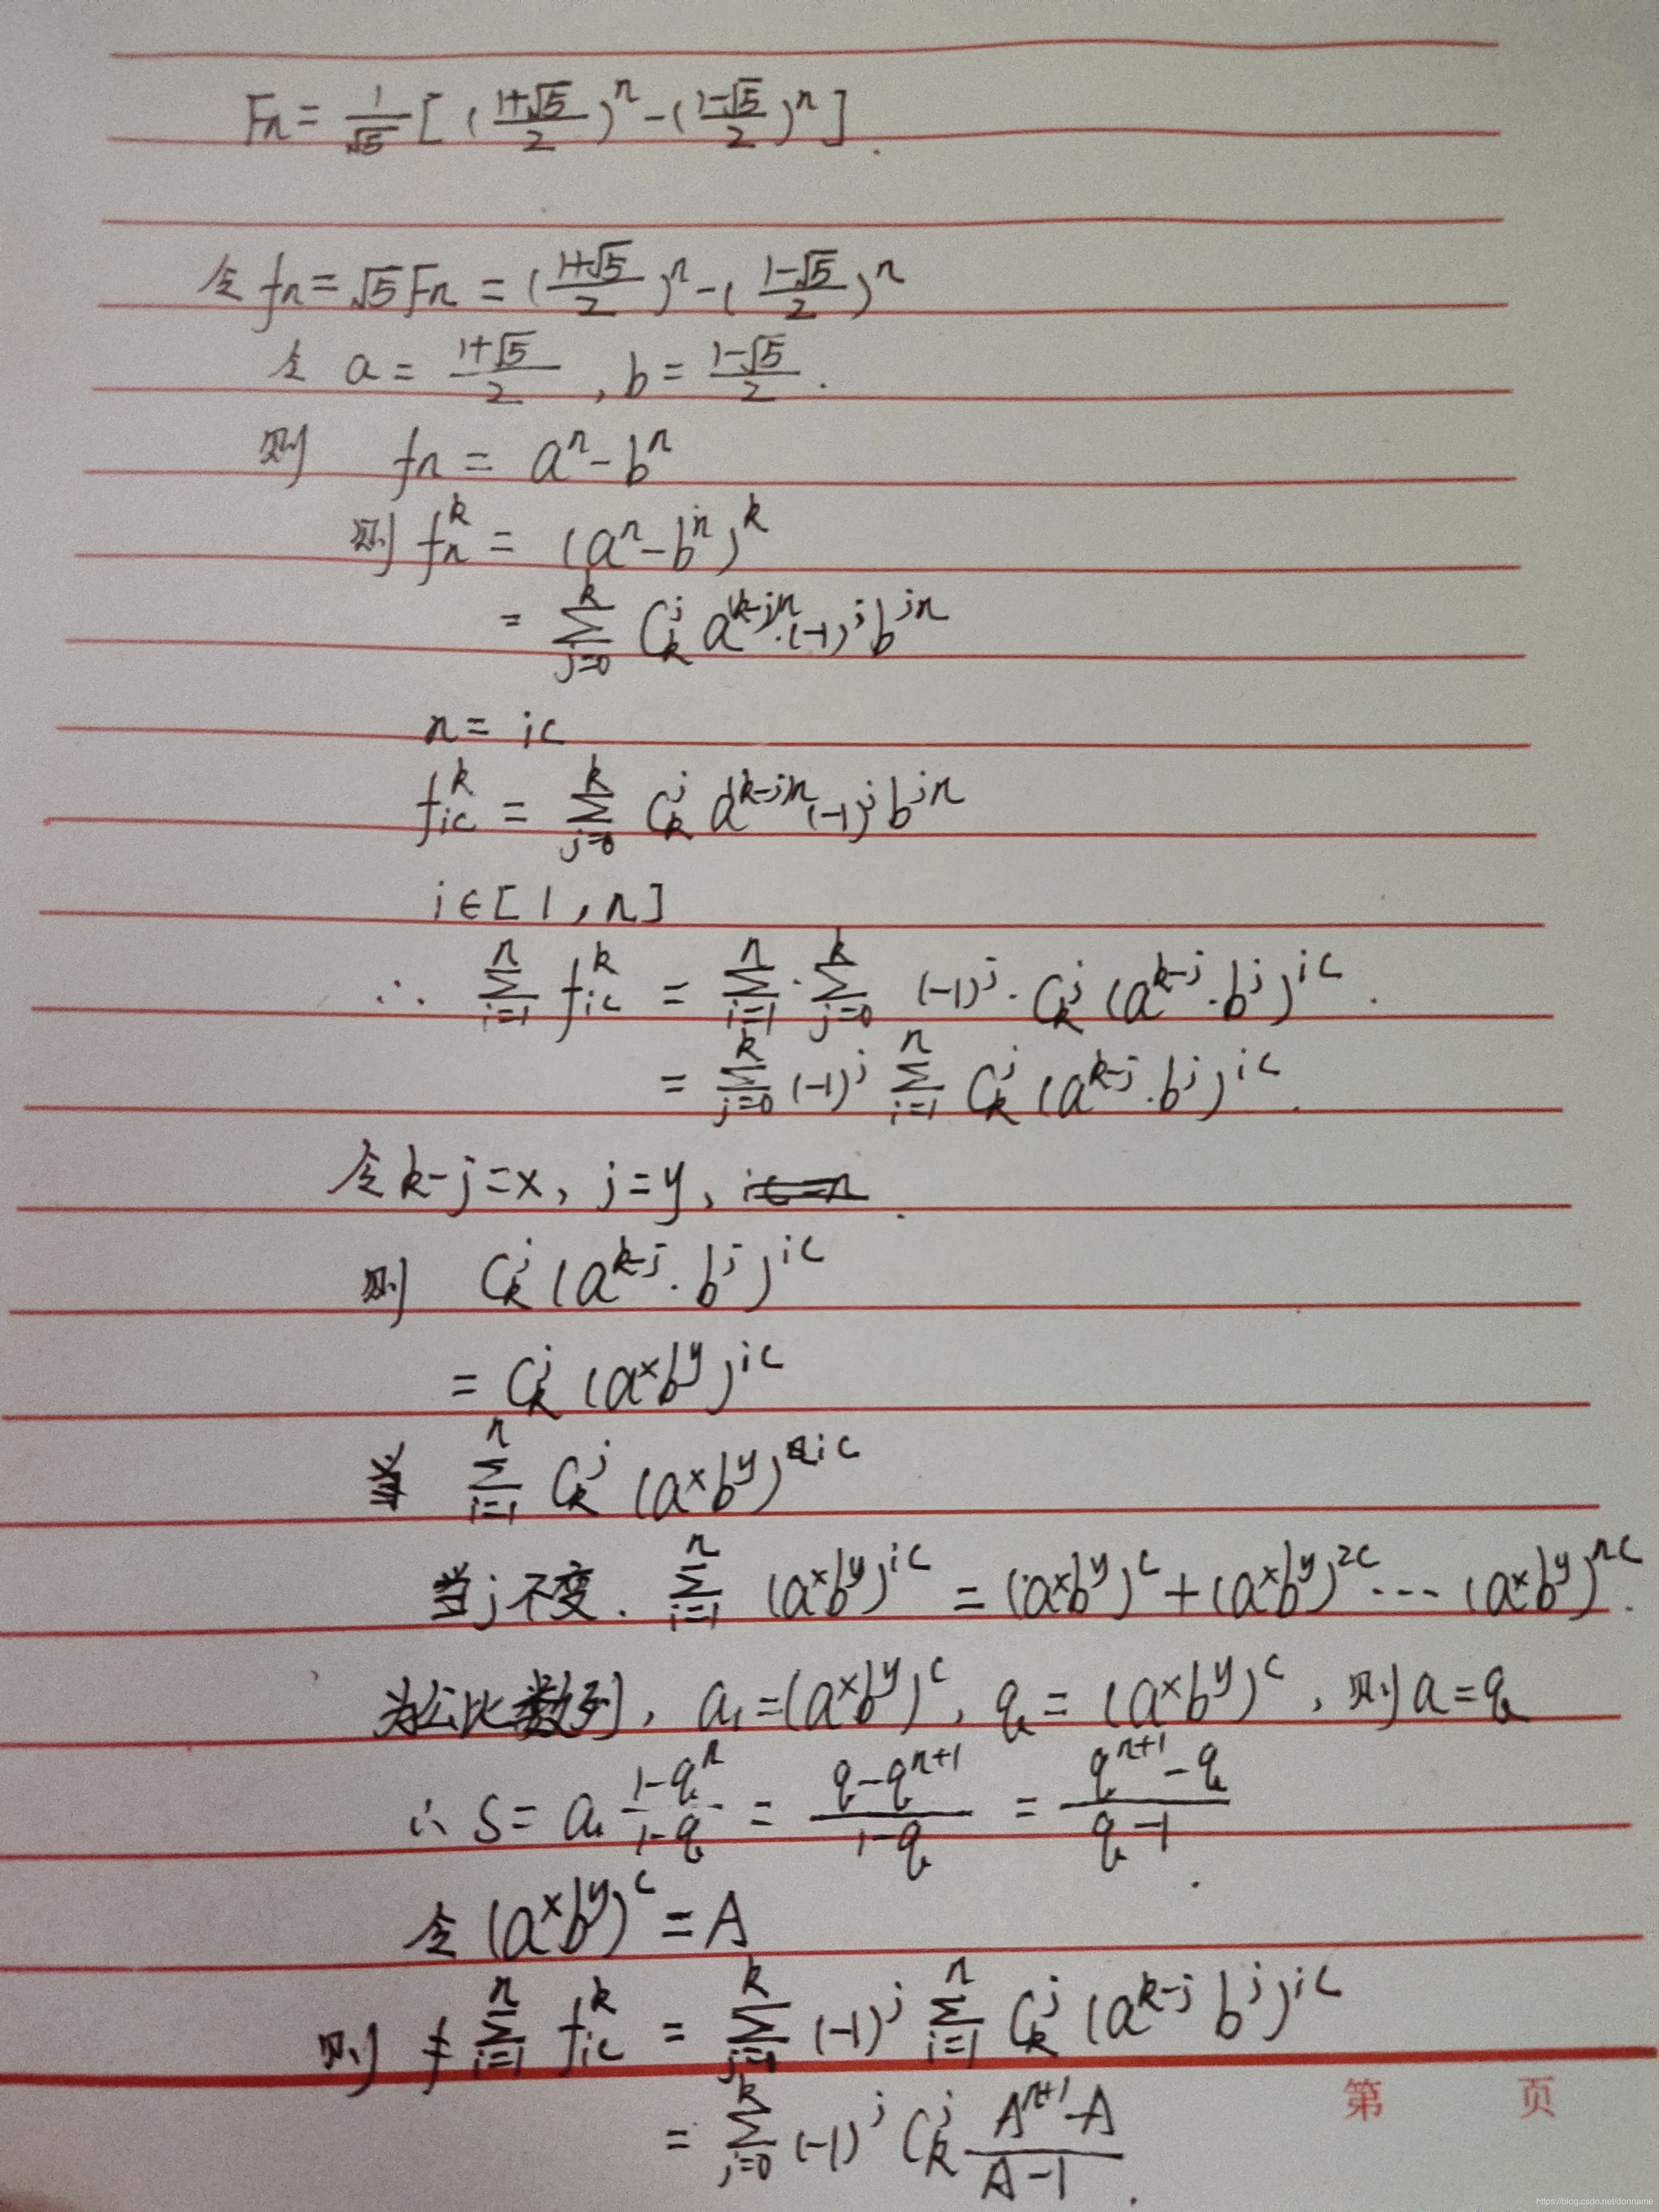 Fn = 1/√5 [ ((1+√5)/2)^n - ((1-√5)/2)^n ].
令 fn = √5 Fn = ((1+√5)/2)^n - ((1-√5)/2)^n
令 a = (1+√5)/2 , b = (1-√5)/2 .
则 fn = a^n - b^n
则 f_n^k = (a^n - b^n)^k
= Σ_{j=0}^{k} C_k^j a^{(k-j)n} · (-1)^j b^{jn}
n = ic
f_{ic}^k = Σ_{j=0}^{k} C_k^j a^{(k-j)n} (-1)^j b^{jn}
i ∈ [ 1 , n ]
∴ Σ_{i=1}^{n} f_{ic}^k = Σ_{i=1}^{n} · Σ_{j=0}^{k} (-1)^j · C_k^j (a^{k-j} · b^j)^{ic} .
= Σ_{j=0}^{k} (-1)^j Σ_{i=1}^{n} C_k^j (a^{k-j} · b^j)^{ic} .
令 k-j=x, j=y, ic=n .
则 C_k^j (a^{k-j} · b^j)^{ic}
= C_k^j (a^x b^y)^{ic}
Σ_{i=1}^{n} C_k^j (a^x b^y)^{ic}
当j不变. Σ_{i=1}^{n} (a^x b^y)^{ic} = (a^x b^y)^c + (a^x b^y)^{2c} ··· (a^x b^y)^{nc} .
为公比数列, a₁=(a^x b^y)^c, q = (a^x b^y)^c, 则 a = q
∴ S = a₁ (1-q^n)/(1-q) = (q-q^{n+1})/(1-q) = (q^{n+1}-q)/(q-1) .
令 (a^x b^y)^c = A
则 Σ_{i=1}^{n} f_{ic}^k = Σ_{j=0}^{k} (-1)^j Σ_{i=1}^{n} C_k^j (a^{k-j} b^j)^{ic}
第 页
= Σ_{j=0}^{k} (-1)^j C_k^j (A^{n+1}-A)/(A-1) .
https://blog.csdn.net/donname